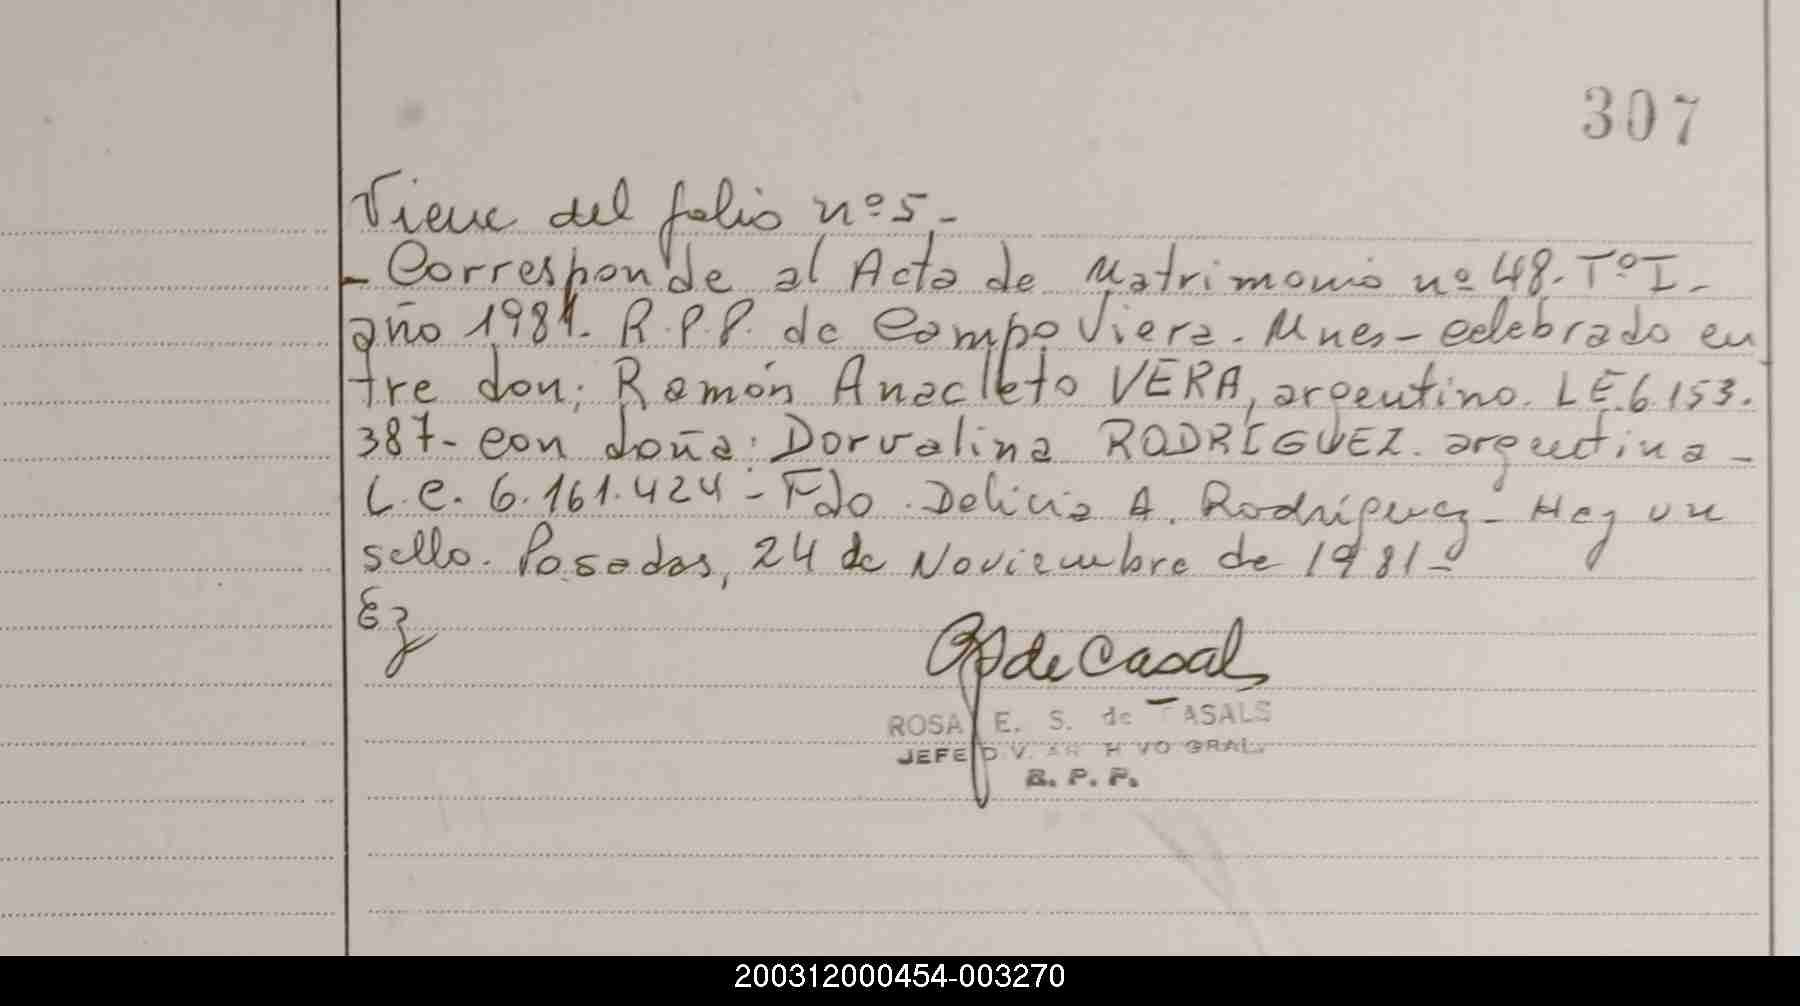 307
Viene del folio nº 5-
- Corresponde al Acta de Matrimonio nº 48. Tº I-
año 1981. R.P.P. de Campo Viera. Mnes- celebrado en
tre don; Ramón Anacleto VERA, argentino. L.E. 6.153.
387- con doña: Dorvalina RODRÍGUEZ. argentina-
L.C. 6.161.424- Fdo. Delicia A. Rodríguez- Hay un
sello. Posadas, 24 de Noviembre de 1981-
Ez
de Casals
ROSA E. S. de CASALS
JEFE DIV. ARCHIVO GRAL.
R. P. P.
200312000454-003270